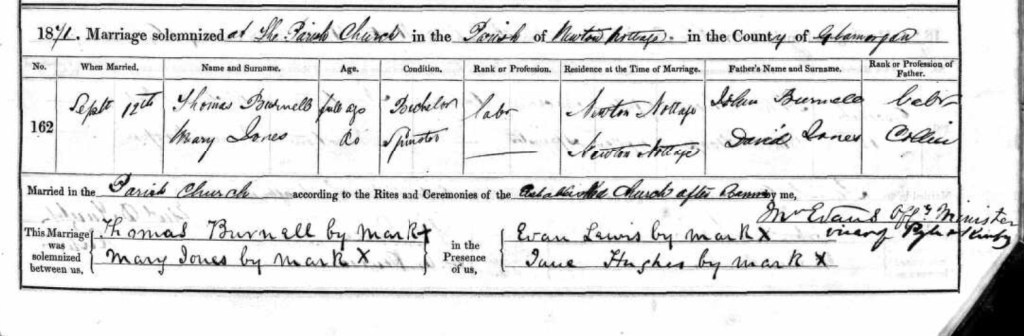 1871. Marriage solemnized at The Parish Church in the Parish of Newton Nottage in the County of Glamorgan
No. When Married. Name and Surname. Age. Condition. Rank or Profession. Residence at the Time of Marriage. Father's Name and Surname. Rank or Profession of Father.
162 Septr 12th Thomas Burnell full age Bachelor labr Newton Nottage John Burnell labr
Mary Jones Do Spinster Newton Nottage David Jones Collier
Married in the Parish Church according to the Rites and Ceremonies of the Established Church after Banns by me,
Evans Offg Minister
vicar of Pyle & Kenfig
This Marriage was solemnized between us, Thomas Burnell by mark X in the Presence of us, Evan Lewis by mark X
Mary Jones by mark X Jane Hughes by mark X